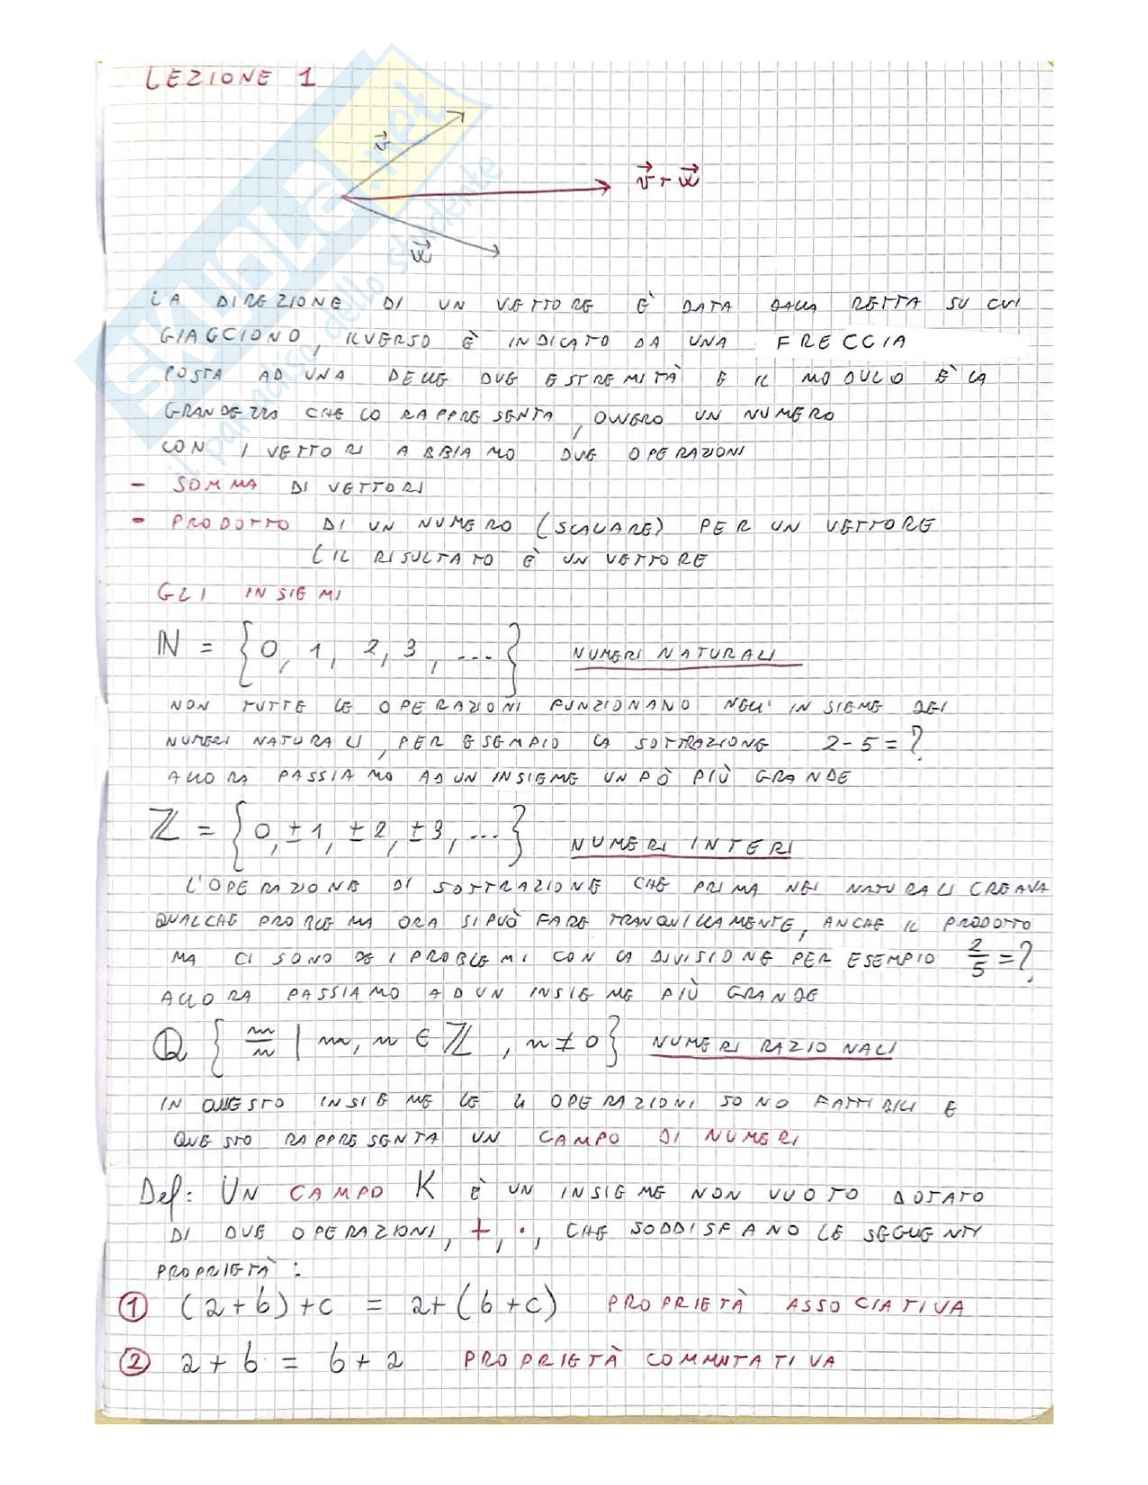 LEZIONE 1
v⃗
v⃗ + w⃗
w⃗
LA DIREZIONE DI UN VETTORE È DATA DALLA RETTA SU CUI
GIACCIONO, IL VERSO È INDICATO DA UNA FRECCIA
POSTA AD UNA DELLE DUE ESTREMITÀ E IL MODULO È LA
GRANDEZZA CHE LO RAPPRESENTA, OVVERO UN NUMERO
CON I VETTORI ABBIAMO DUE OPERAZIONI
- SOMMA DI VETTORI
- PRODOTTO DI UN NUMERO (SCALARE) PER UN VETTORE
(IL RISULTATO È UN VETTORE
GLI INSIEMI
ℕ = {0, 1, 2, 3, ...} NUMERI NATURALI
NON TUTTE LE OPERAZIONI FUNZIONANO NELL'INSIEME DEI
NUMERI NATURALI, PER ESEMPIO LA SOTTRAZIONE 2-5=?
ALLORA PASSIAMO AD UN INSIEME UN PÒ PIÙ GRANDE
ℤ = {0, ±1, ±2, ±3, ...} NUMERI INTERI
L'OPERAZIONE DI SOTTRAZIONE CHE PRIMA NEI NATURALI CREAVA
QUALCHE PROBLEMA ORA SI PUÒ FARE TRANQUILLAMENTE, ANCHE IL PRODOTTO
MA CI SONO DEI PROBLEMI CON LA DIVISIONE PER ESEMPIO 2/5=?
ALLORA PASSIAMO AD UN INSIEME PIÙ GRANDE
ℚ {m/n | m, n ∈ ℤ, n ≠ 0} NUMERI RAZIONALI
IN QUESTO INSIEME LE 4 OPERAZIONI SONO FATTIBILI E
QUESTO RAPPRESENTA UN CAMPO DI NUMERI
Def: UN CAMPO K È UN INSIEME NON VUOTO DOTATO
DI DUE OPERAZIONI, +, ·, CHE SODDISFANO LE SEGUENTI
PROPRIETÀ:
① (a+b)+c = a+(b+c) PROPRIETÀ ASSOCIATIVA
② a+b = b+a PROPRIETÀ COMMUTATIVA
SKUOLA.net
il paradiso dello studente